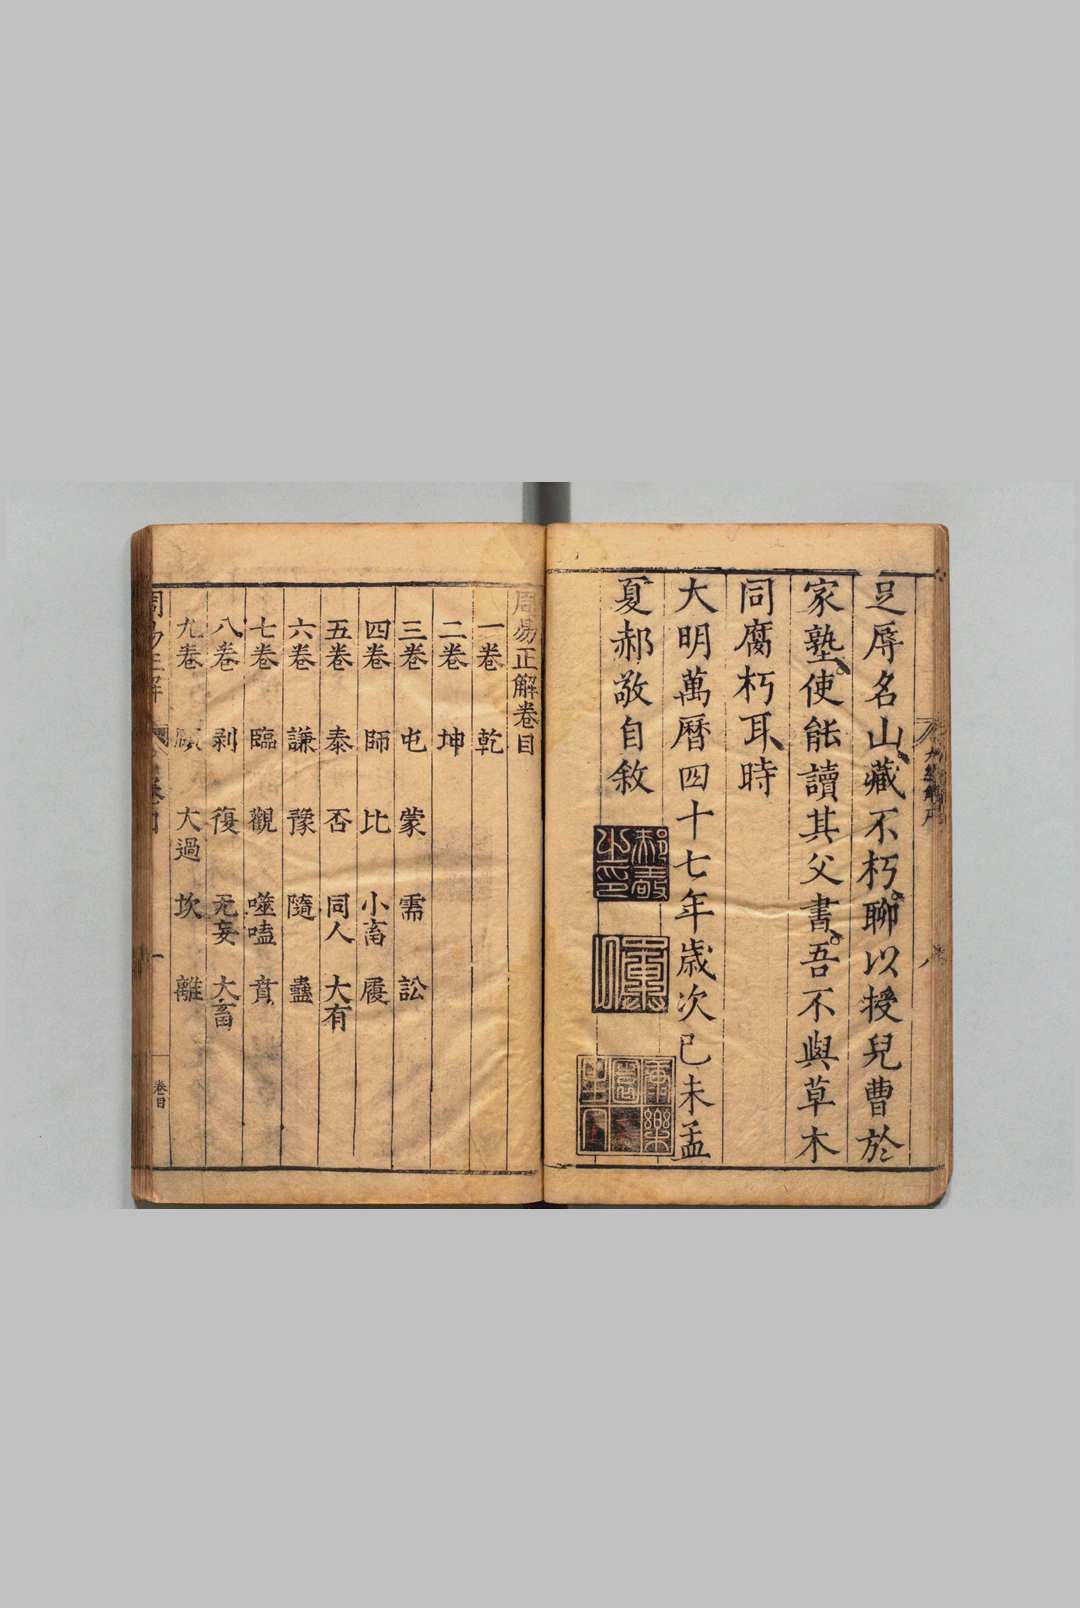 足辱名山藏不朽聊以授兒曹於
家塾使能讀其父書吾不與草木
同腐朽耳時
大明萬曆四十七年歲次己未孟
夏郝敬自敘
周易正解卷目
一卷 乾
二卷 坤
三卷 屯 蒙 需 訟
四卷 師 比 小畜 履
五卷 泰 否 同人 大有
六卷 謙 豫 隨 蠱
七卷 臨 觀 噬嗑 賁
八卷 剥 復 无妄 大畜
九卷 頤 大過 坎 離
周易正解 卷目 一 卷目